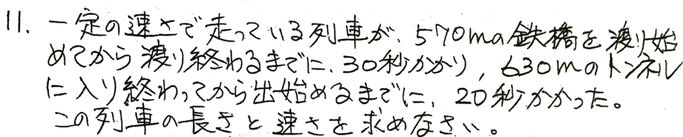 11. 一定の速さで走っている列車が、570mの鉄橋を渡り始
めてから渡り終わるまでに、30秒かかり、630mのトンネル
に入り終わってから出始めるまでに、20秒かかった。
この列車の長さと速さを求めなさい。